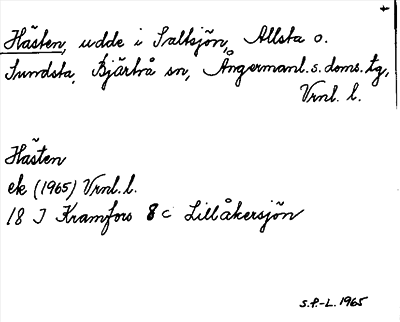 Hästen, udde i Saltsjön, Allsta o.
Sundsta, Bjärtrå sn, Ångermanl. s. doms. tg,
Vrnl. l.
Hästen
ek (1965) Vrnl. l.
18 J Kramfors 8 c Lillåkersjön
S.P.-L. 1965